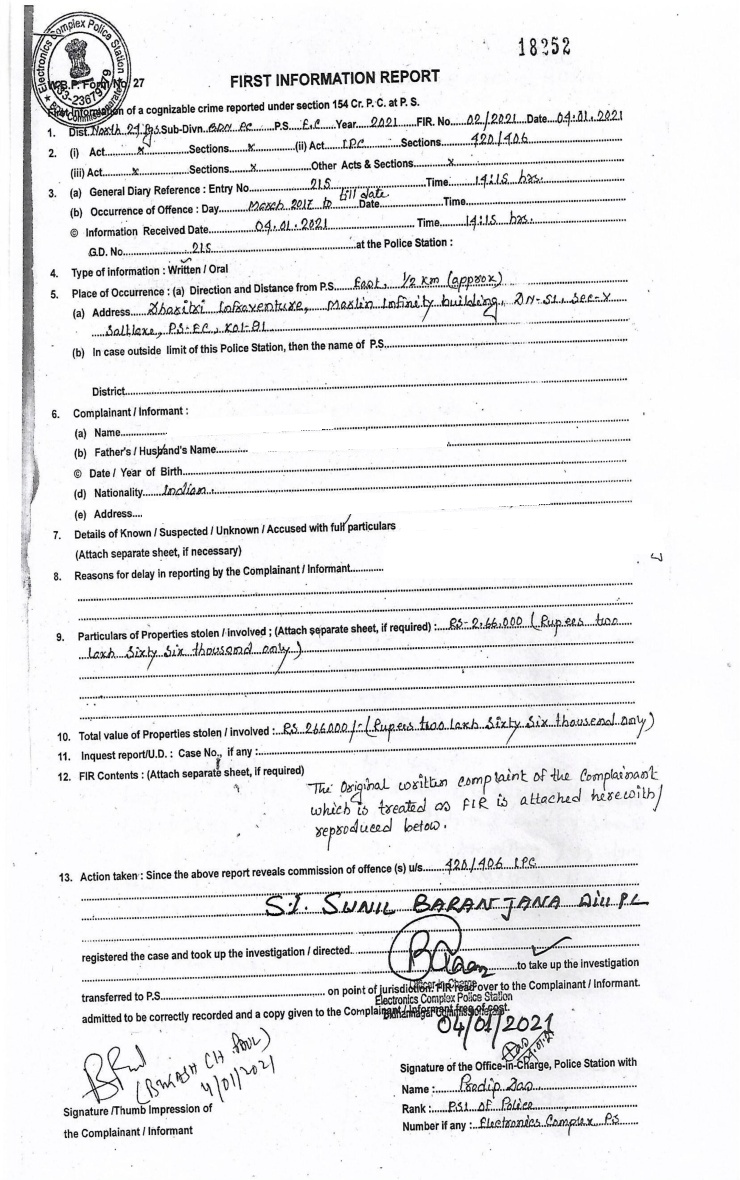 18252
Electronics Complex Police Station
W.B.P. Form No. 27
FIRST INFORMATION REPORT
First Information of a cognizable crime reported under section 154 Cr. P. C. at P. S.
1. Dist. North 24 Pgs. Sub-Divn. BDN PC P.S. E.C Year 2021 FIR. No. 02/2021 Date 04.01.2021
2. (i) Act x Sections x (ii) Act I.P.C Sections 420/406
(iii) Act x Sections x Other Acts & Sections x
3. (a) General Diary Reference : Entry No. 215 Time 14:15 hrs.
(b) Occurrence of Offence : Day March 2017 to till date Date Time
© Information Received Date 04.01.2021 Time 14:15 hrs.
G.D. No. 215 at the Police Station :
4. Type of information : Written / Oral
5. Place of Occurrence : (a) Direction and Distance from P.S East, 1/2 Km (approx)
(a) Address Dharitri Infraventure, Merlin Infinity building, DN-51, Sec-V
Saltlake, P.S-EC, Kol-91
(b) In case outside limit of this Police Station, then the name of P.S.
District
6. Complainant / Informant :
(a) Name
(b) Father's / Husband's Name
© Date / Year of Birth
(d) Nationality Indian
(e) Address
7. Details of Known / Suspected / Unknown / Accused with full particulars
(Attach separate sheet, if necessary)
8. Reasons for delay in reporting by the Complainant / Informant
9. Particulars of Properties stolen / involved ; (Attach separate sheet, if required) : RS-2,66,000 (Rupees two
lakh Sixty Six thousand only)
10. Total value of Properties stolen / involved : RS 266000/- (Rupees two lakh Sixty Six thousand only)
11. Inquest report/U.D. : Case No., if any :
12. FIR Contents : (Attach separate sheet, if required)
The Original written complaint of the Complainant
which is treated as FIR is attached herewith/
reproduced below.
13. Action taken : Since the above report reveals commission of offence (s) u/s 420/406 IPC
S.I. SUNIL BARAN JANA
registered the case and took up the investigation / directed to take up the investigation
transferred to P.S. on point of jurisdiction. FIR read over to the Complainant / Informant.
Officer-in-Charge
Electronics Complex Police Station
admitted to be correctly recorded and a copy given to the Complainant / Informant free of cost.
Bidhannagar Commissionerate
04/01/2021
04.01.21
(BIKASH CH. PAUL)
4/01/2021
Signature /Thumb Impression of
the Complainant / Informant
Signature of the Office-in-Charge, Police Station with
Name : Pradip Das
Rank : P.S.I. of Police
Number if any : Electronics Complex PS